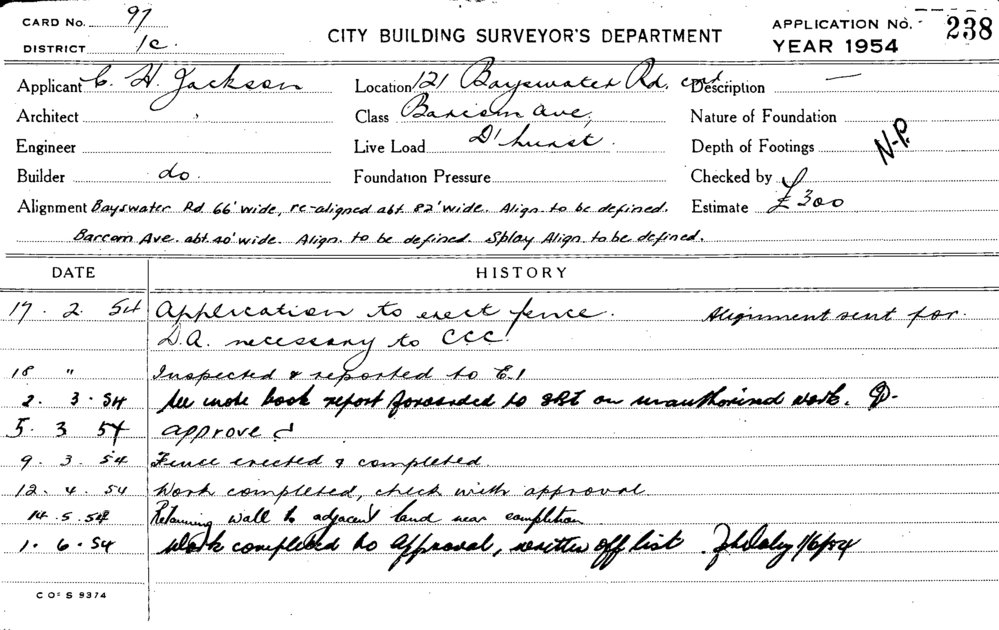 CARD NO. 97
DISTRICT 1c.
CITY BUILDING SURVEYOR'S DEPARTMENT
APPLICATION NO. 238
YEAR 1954
Applicant C. H. Jackson
Location 121 Bayswater Rd. cnr
Description —
Architect
Class Barcom Ave,
Nature of Foundation
Engineer
Live Load D'hurst.
Depth of Footings
N-P.
Builder do.
Foundation Pressure
Checked by
Alignment Bayswater Rd 66' wide, re-aligned abt 82' wide. Align. to be defined.
Estimate £300
Barcom Ave. abt 40' wide. Align. to be defined. Splay Align. to be defined.
DATE HISTORY
17. 2. 54 Application to erect fence. Alignment sent for.
D.A. necessary to CCC.
18 " Inspected & reported to E.1
2. 3. 54 See mode book report forwarded to on unauthorised work.
5. 3 54 approved
9. 3. 54 Fence erected & completed
12. 4. 54 Work completed, check with approval.
14. 5. 54 Retaining wall to adjacent land near completion.
1. 6. 54 Work completed to approval, written off list. 1/6/54
C OF S 9374